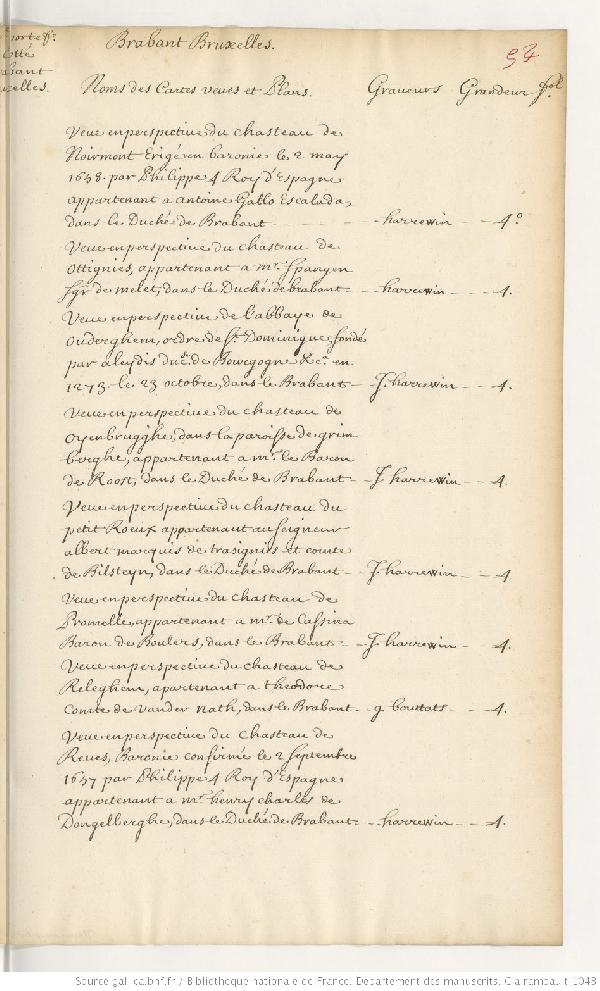 Brabant Bruxelles.
54
Noms des Cartes veues et Plans. Graveurs Grandeur fol.
Veue en perspective du chasteau de
Noirmont Erigé en baronie le 2 may
1658. par Philippe 4 Roy d'Espagne
appartenant a antoine Gallo Escalada,
dans le Duché de Brabant - - - - harrewin - - 4.º
Veue en perspective du chasteau de
ottignies, appartenant a mr. Spangen
sgr. de melet, dans le Duché de brabant - - harrewin - - - 4.
Veue en perspective de l'abbaye de
ouderghem, ordre de St. Dominique fondé
par aleydis duc. de Bourgogne &c. en
1273. le 23 octobre, dans le Brabant - - J. harrewin - - 4.
Veue en perspective du chasteau de
oyenbrugghe, dans la paroisse de grim
berghe, appartenant a mr. le Baron
de Roost, dans le Duché de Brabant - - J harrewin - - 4.
Veue en perspective du chasteau du
petit Roeux appartenant au seigneur
albert marquis de trasignies et comte
de Bilsteyn, dans le Duché de Brabant - - J. harrewin - - 4
Veue en perspective du chasteau de
Promelle, appartenant a mr. de Cassina
Baron de Boulers, dans le Brabant - - J. harrewin - - 4.
Veue en perspective du chasteau de
Releghem, apartenant a theodore
Comte de vander nath, dans le Brabant - g bouttats - - 4.
Veue en perspective du Chasteau de
Reves, Baronie confirmée le 2 septembre
1657 par Philippe 4 Roy d'Espagne
appartenant a mr. henry charles de
Dongelberghe, dans le Duché de Brabant - - harrewin - - 4.
Source gallica.bnf.fr / Bibliothèque nationale de France. Département des manuscrits. Clairambault 1048